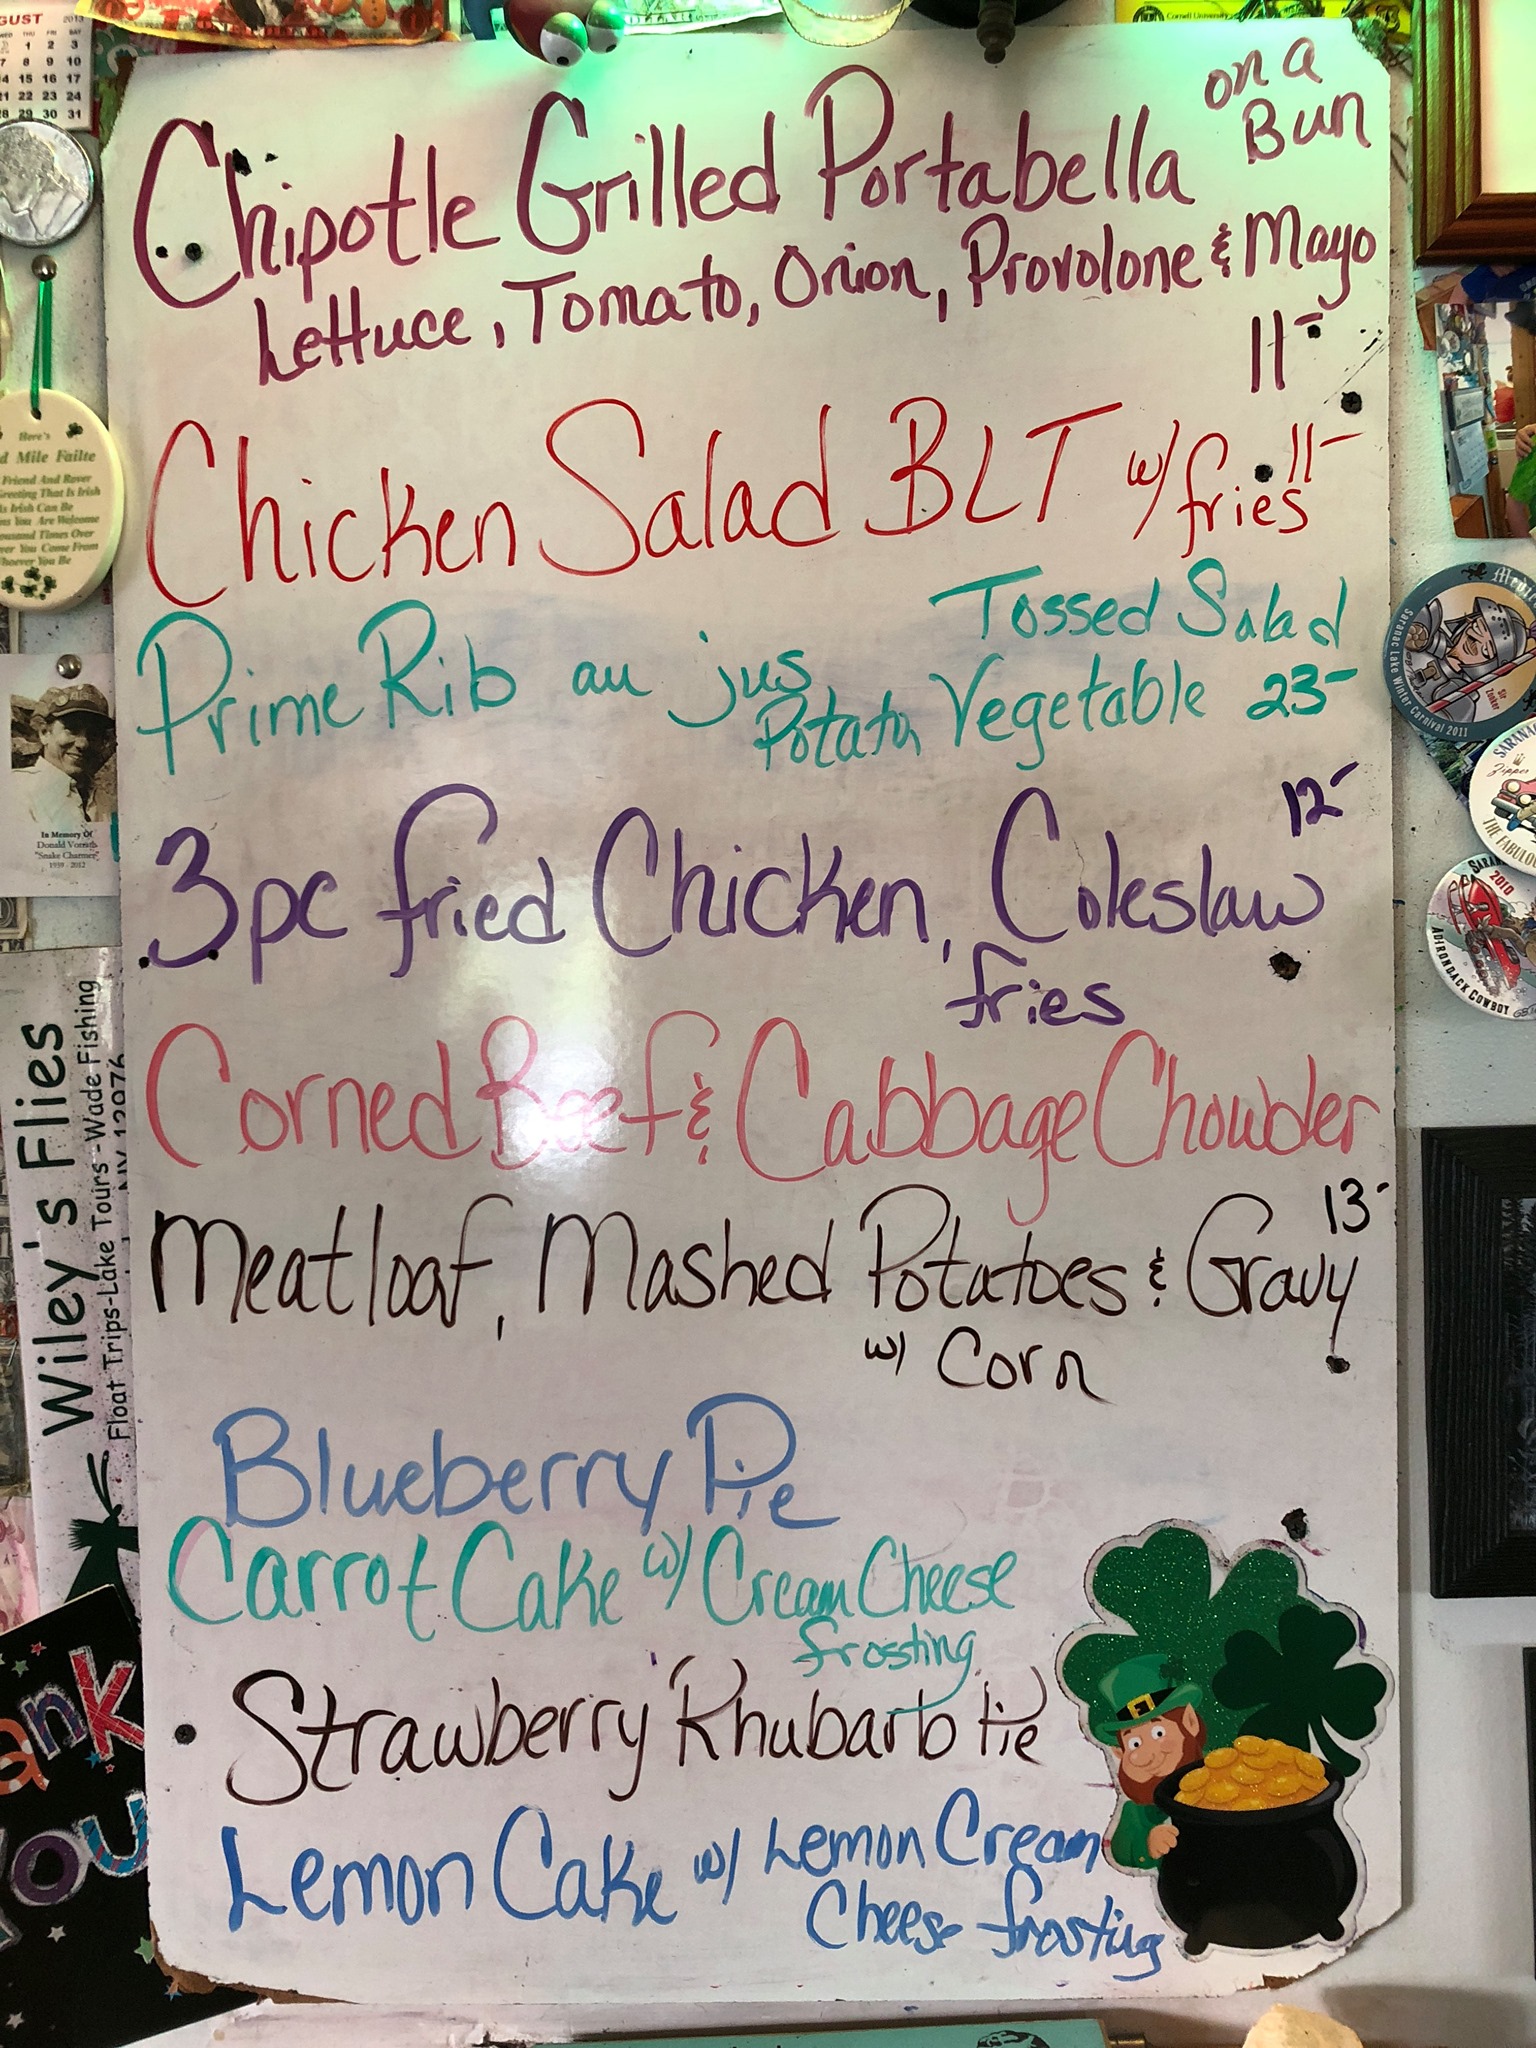 on a
Bun
Chipotle Grilled Portabella
Lettuce, Tomato, Onion, Provolone & Mayo
11-
Chicken Salad BLT w/ fries 11-
Prime Rib au jus
Tossed Salad
Potato, Vegetable 23-
12-
3pc fried Chicken, Coleslaw
fries
Corned Beef & Cabbage Chowder
13-
Meatloaf, Mashed Potatoes & Gravy
w/ Corn
Blueberry Pie
Carrot Cake w/ Cream Cheese
frosting
Strawberry Rhubarb Pie
Lemon Cake w/ Lemon Cream
Cheese frosting
2013
THU FRI SAT
1 2 3
7 8 9 10
14 15 16 17
21 22 23 24
28 29 30 31
Here's
Mile Failte
Friend And Rover
Greeting That Is Irish
Irish Can Be
You Are Welcome
Thousand Times Over
You Come From
Whoever You Be
In Memory Of
Donald Vorrath
"Snake Charmer"
1939 - 2012
Wiley's Flies
Float Trips-Lake Tours-Wade Fishing
NY 12976
You
Cornell University
Saranac Lake Winter Carnival 2011
Sir
Zipper
THE
2010
ADIRONDACK COWBOY